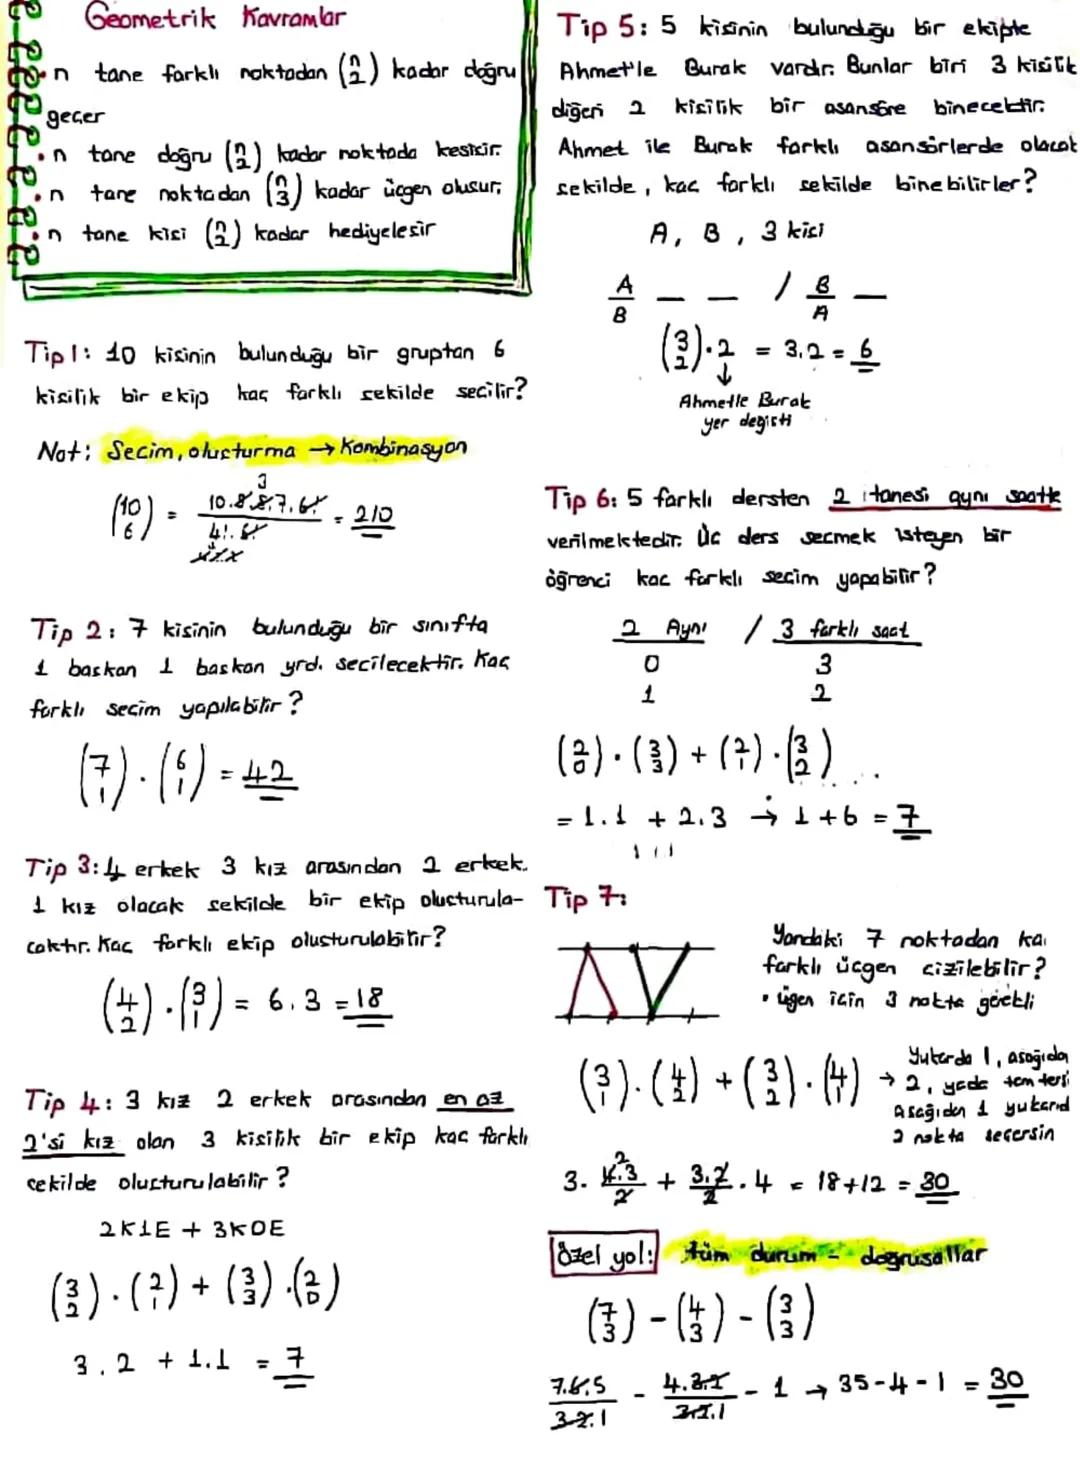 Geometrik Kavramlar
• n tane farklı noktadan (n 2) kadar doğru
geçer
• n tane doğru (n 2) kadar noktada kesişir.
• n tane noktadan (n 3) kadar üçgen oluşur.
• n tane kişi (n 2) kadar hediyeleşir
Tip 1: 10 kişinin bulunduğu bir gruptan 6
kişilik bir ekip kaç farklı şekilde seçilir?
Not: Seçim, oluşturma → Kombinasyon
(10 6) = 10.9.8.7.6! / 4!.6! = 210
Tip 2: 7 kişinin bulunduğu bir sınıfta
1 başkan 1 başkan yrd. seçilecektir. Kaç
farklı seçim yapılabilir?
(7 1) . (6 1) = 42
Tip 3: 4 erkek 3 kız arasından 2 erkek.
1 kız olacak şekilde bir ekip oluşturula-
caktır. Kaç farklı ekip oluşturulabilir?
(4 2) . (3 1) = 6.3 = 18
Tip 4: 3 kız 2 erkek arasından en az
2'si kız olan 3 kişilik bir ekip kaç farklı
şekilde oluşturulabilir?
2K1E + 3K0E
(3 2) . (2 1) + (3 3) . (2 0)
3.2 + 1.1 = 7
Tip 5: 5 kişinin bulunduğu bir ekipte
Ahmet'le Burak vardır. Bunlar biri 3 kişilik
diğeri 2 kişilik bir asansöre binecektir.
Ahmet ile Burak farklı asansörlerde olacak
şekilde, kaç farklı şekilde binebilirler?
A, B, 3 kişi
A _ _ / B _
B A
(3 2) . 2 = 3.2 = 6
↓
Ahmetle Burak
yer değişti
Tip 6: 5 farklı dersten 2 tanesi aynı saatte
verilmektedir. Üç ders seçmek isteyen bir
öğrenci kaç farklı seçim yapabilir?
2 Aynı / 3 farklı saat
0 3
1 2
(2 0) . (3 3) + (2 1) . (3 2)
= 1.1 + 2.3 → 1+6 = 7
Tip 7:
Yandaki 7 noktadan ka
farklı üçgen çizilebilir?
• üçgen için 3 nokta gerekli
(3 1) . (4 2) + (3 2) . (4 1) → Yukarda 1, aşağıda
2, yada tam tersi
aşağıdan 1 yukarıd
2 nokta seçersin
3. 4.3/2 + 3.2/2 . 4 = 18+12 = 30
Özel yol: tüm durum - doğrusallar
(7 3) - (4 3) - (3 3)
7.6.5/3.2.1 - 4.3.2/3.2.1 - 1 → 35-4-1 = 30